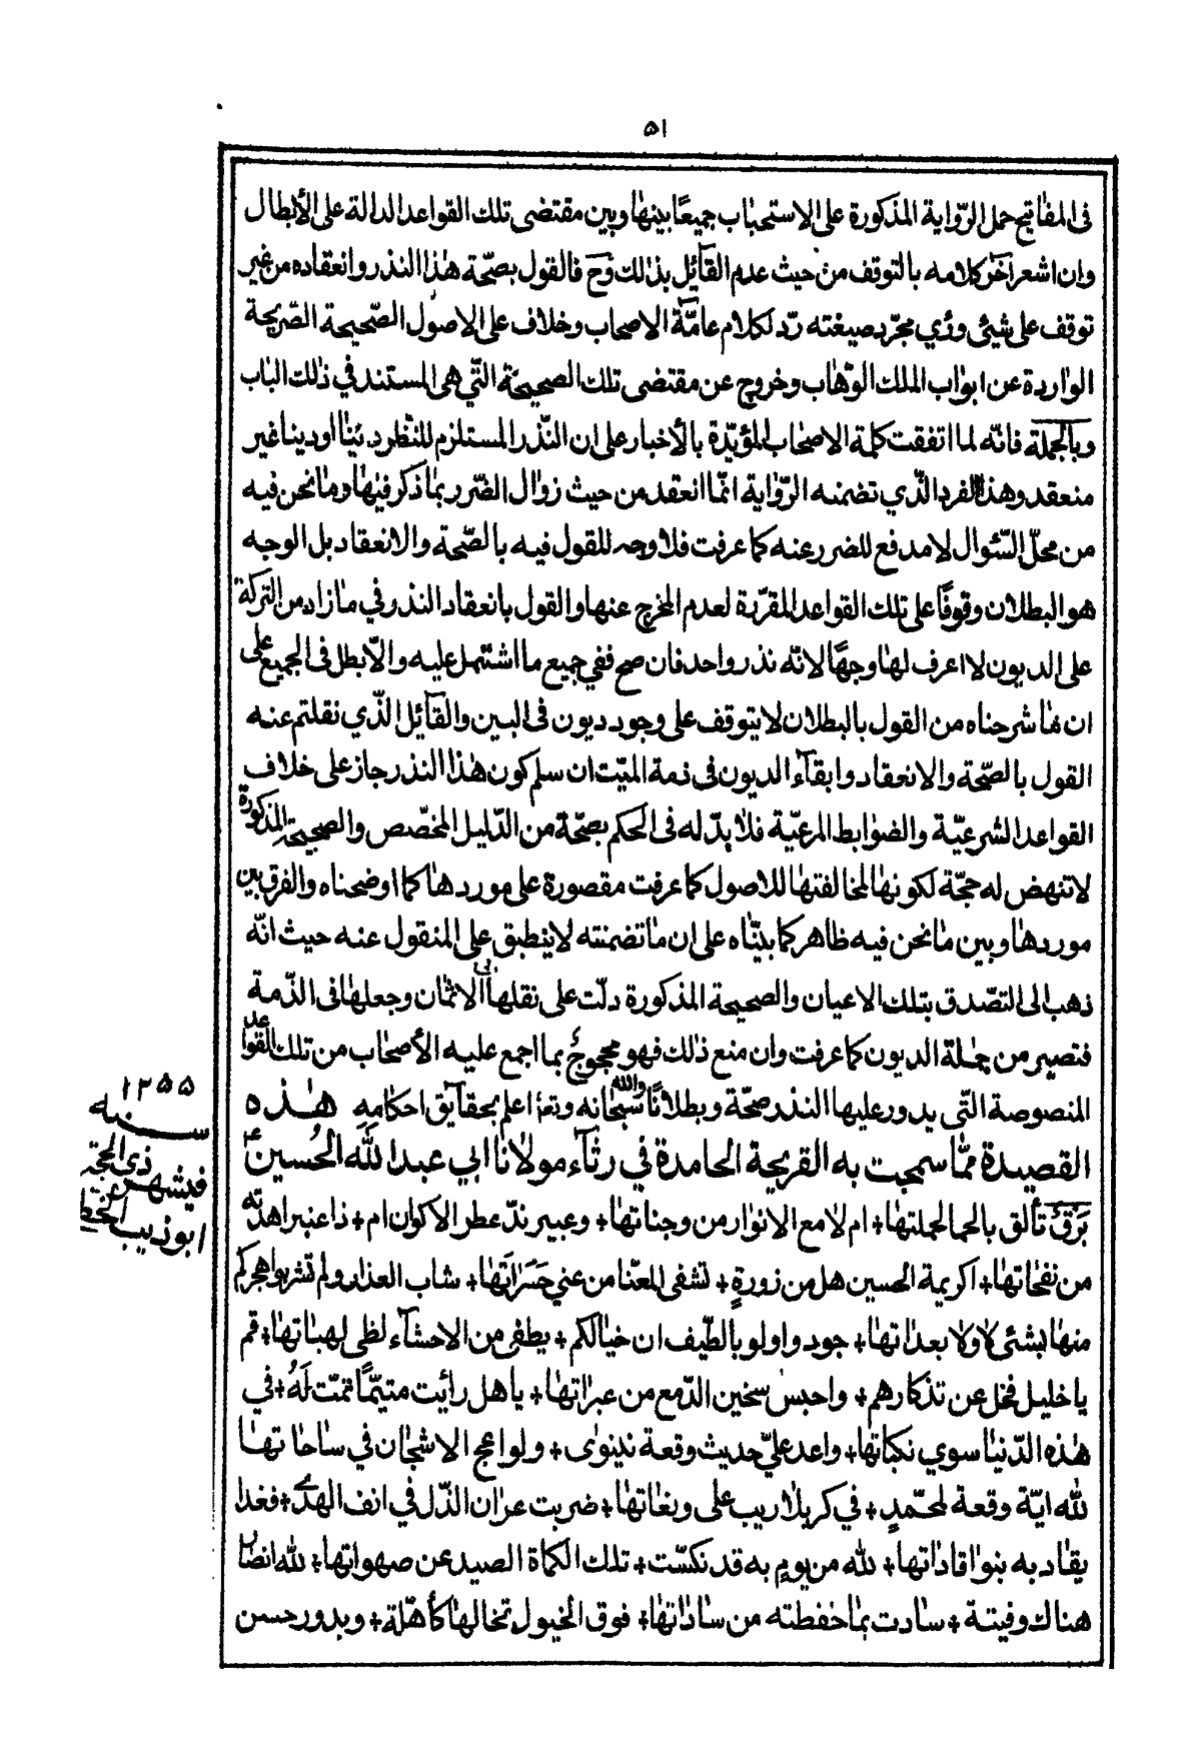 ٥١
فى المفاتيح حمل الرّواية المذكورة على الاستحباب جميعًا بينها وبين مقتضى تلك القواعد الدالة على الأبطال
وان اشعر آخر كلامه بالتوقف من حيث عدم القآئل بذلك وَحَ فالقول بصحّة هذا النذر وانعقاده من غير
توقف على شيئ وأي مجرّد صيغته ردّ لكلام عامّة الاصحاب وخلاف على الاصول الصّحيحة الصّريحة
الواردة عن ابواب الملك الوهّاب وخروج عن مقتضى تلك الصحيحة التّي هى المستند في ذلك الباب
وبالجملة فانّه لما اتفقت كلمة الاصحاب المؤيّدة بالأخبار على ان النّذر المستلزم للنظرد ينا او دينا غير
منعقد وهذا الفرد الّذي تضمنه الرّواية انّما انعقد من حيث زوال الضّرر بما ذكر فيها وما نحن فيه
من محلّ السّئوال لا مدفع للضرر عنه كما عرفت فلا وجه للقول فيه بالصّحة والانعقاد بل الوجه
هو البطلان وقوفًا على تلك القواعد المقرّرة لعدم المخرج عنها والقول بانعقاد النذر في ما زاد من التركة
على الديون لا اعرف لها وجهًا لانّه نذر واحد فان صح ففي جميع ما اشتمل عليه والّا بطل فى الجميع على
ان ما شرحناه من القول بالبطلان لا يتوقف على وجود ديون فى البين والقآئل الّذي نقلتم عنه
القول بالصّحة والانعقاد وابقآء الديون فى ذمة الميّت ان سلم كون هذا النذر جاز على خلاف
القواعد الشرعيّة والضوابط المرعيّة فلا بدّ له فى الحكم بصحّة من الدّليل المخصّص والصحيحة المذكورة
لا تنهض له حجّة لكونها لمخالفتها للاصول كما عرفت مقصورة على موردها كما اوضحناه والفرق بين
موردها وبين ما نحن فيه ظاهر كما بيّناه على ان ما تضمنته لا ينطبق على المنقول عنه حيث انّه
ذهب الى التصّدق بتلك الاعيان والصحيحة المذكورة دلّت على نقلها الى الاثمان وجعلها فى الذّمة
فتصير من جملة الديون كما عرفت وان منع ذلك فهو محجوجٌ بما اجمع عليه الأصحاب من تلك القواعد
المنصوصة التّى يدور عليها النذر صحّة وبطلانًا والله سبحانه وتعا اعلم بحقآيق احكامهِ هذه
القصيدة ممّا سمحت به القريحة الجامدة في رثآء مولانا ابي عبد الله الحُسين ع
بَرَقٌ تألق بالحما لحملتها + ام لامع الانوار من وجناتها + وعبير ندّ عطر الاكوان ام + ذا عنبر اهدته
من نفحاتها + اكريمة الحسين هل من زورةٍ + تشفى المعنّا من عني حَسَرَاتَها + شاب العذار ولم تشربوا هجركم
منها بشئ لا ولا بعداتها + جودوا ولو بالطّيف ان خيالكم + يطفى من الاحشآء لظى لهباتها + قم
يا خليل فخل عن تذكارهم + واحبس سخين الدّمع من عبراتها + يا هل رأيت متيّمًا تمّت لَهُ + في
هذه الدّنيا سوي نكباتها + واعد عليّ حديث وقعة نينوى + ولواعج الاشجان في ساحاتها
لله ايّة وقعة لمحمّدٍ + في كربلا ريب على وبغاتها + ضربت عران الذّل في انف الهدى + فغدا
يقاد به بنوا قاداتها + لله من يومٍ به قد نكسّت + تلك الكماة الصيد عن صهواتها + لله انصار
هناك وفيتة + سادت بما حفطته من ساداتها + فوق الخيول تخالها كأهّلة + وبدور حسن
١٢٥٥
سنه
في شهر ذي الحجة
ابو ذيب الخط